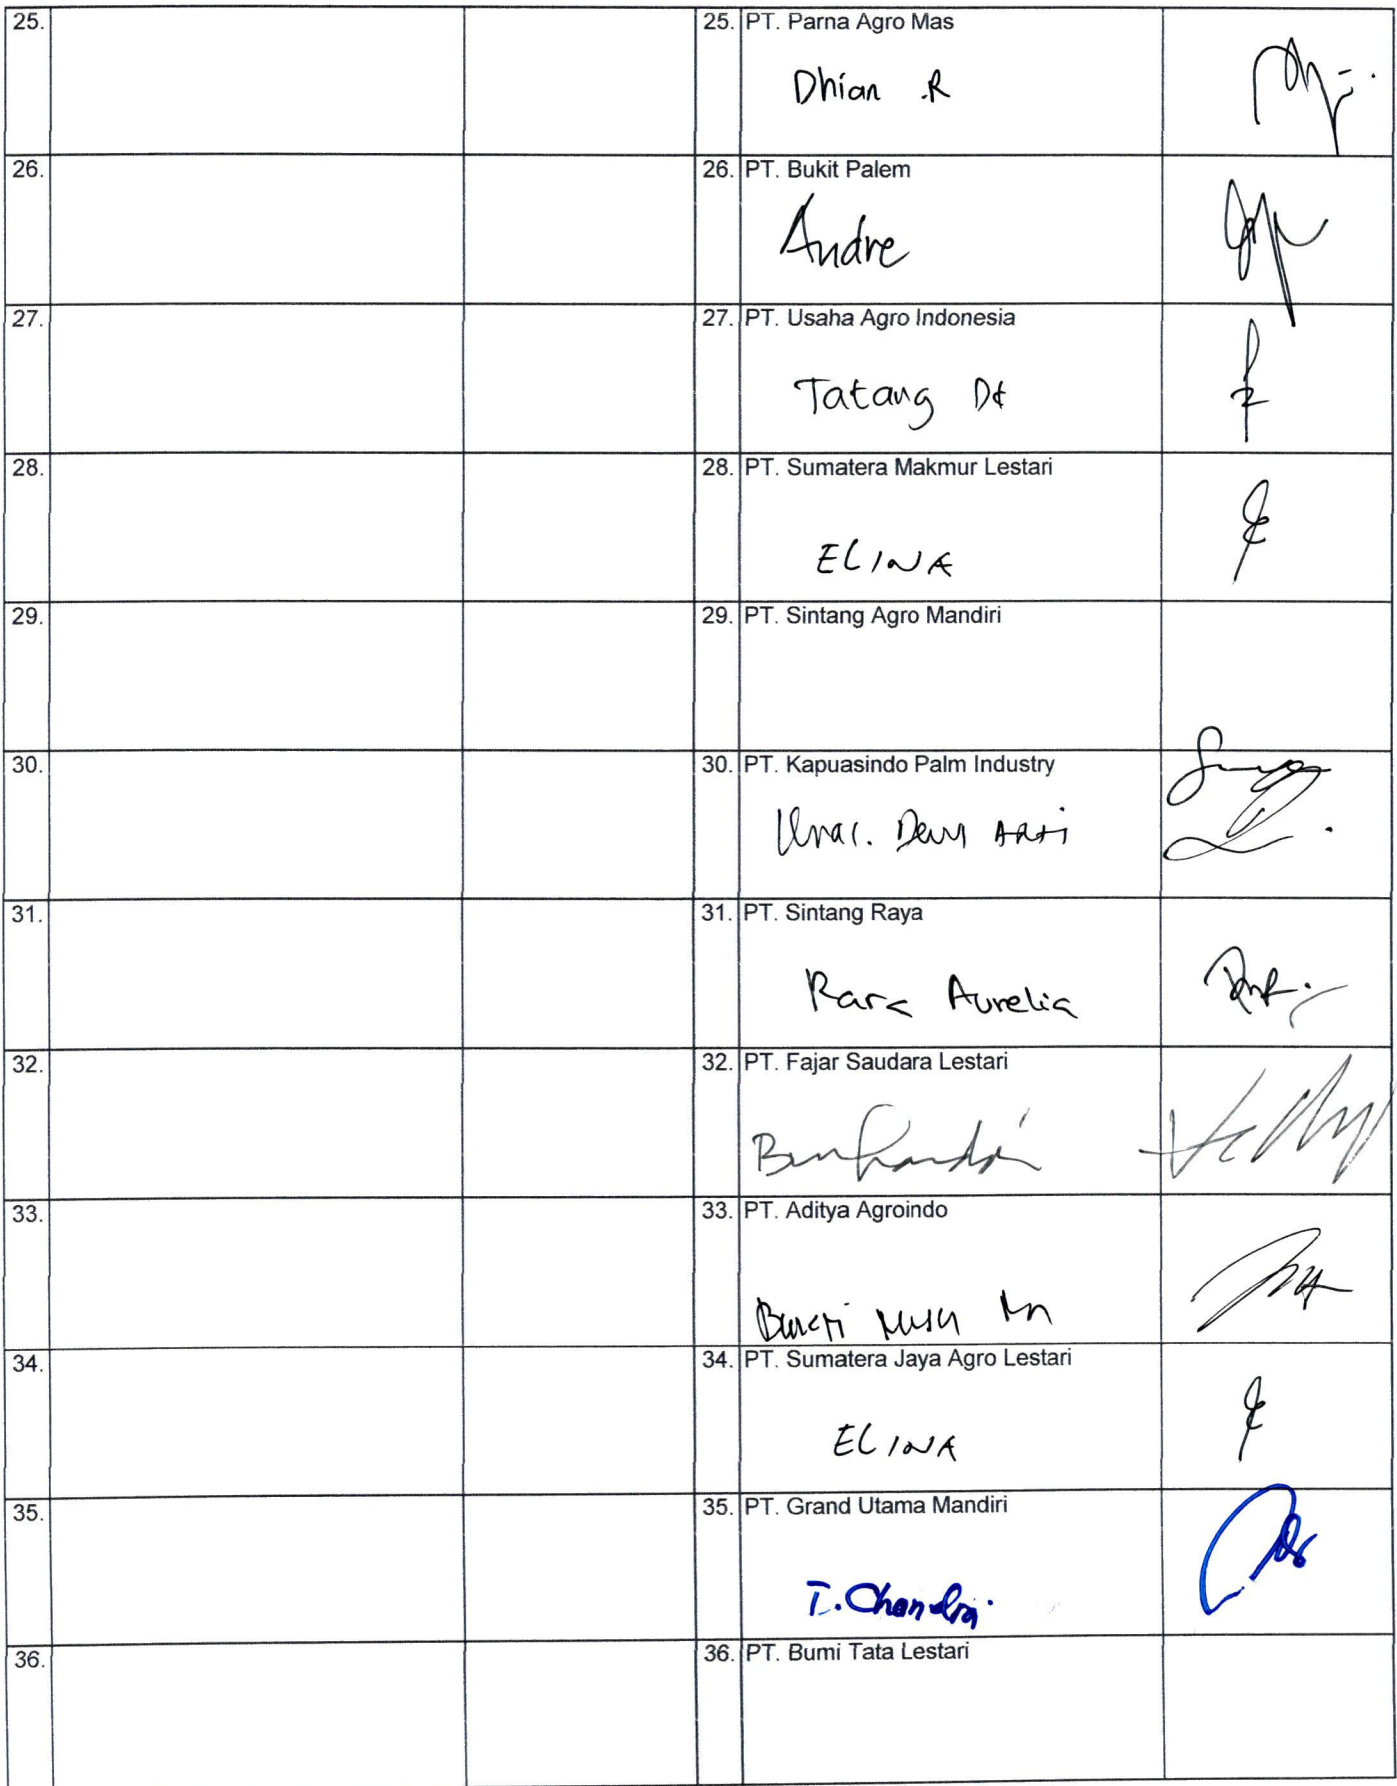 25.
25. PT. Parna Agro Mas
Dhian .R
26.
26. PT. Bukit Palem
Andre
27.
27. PT. Usaha Agro Indonesia
Tatang
28.
28. PT. Sumatera Makmur Lestari
ELINA
29.
29. PT. Sintang Agro Mandiri
30.
30. PT. Kapuasindo Palm Industry
31.
31. PT. Sintang Raya
Rara Aurelia
32.
32. PT. Fajar Saudara Lestari
33.
33. PT. Aditya Agroindo
34.
34. PT. Sumatera Jaya Agro Lestari
ELINA
35.
35. PT. Grand Utama Mandiri
T. Chandra
36.
36. PT. Bumi Tata Lestari